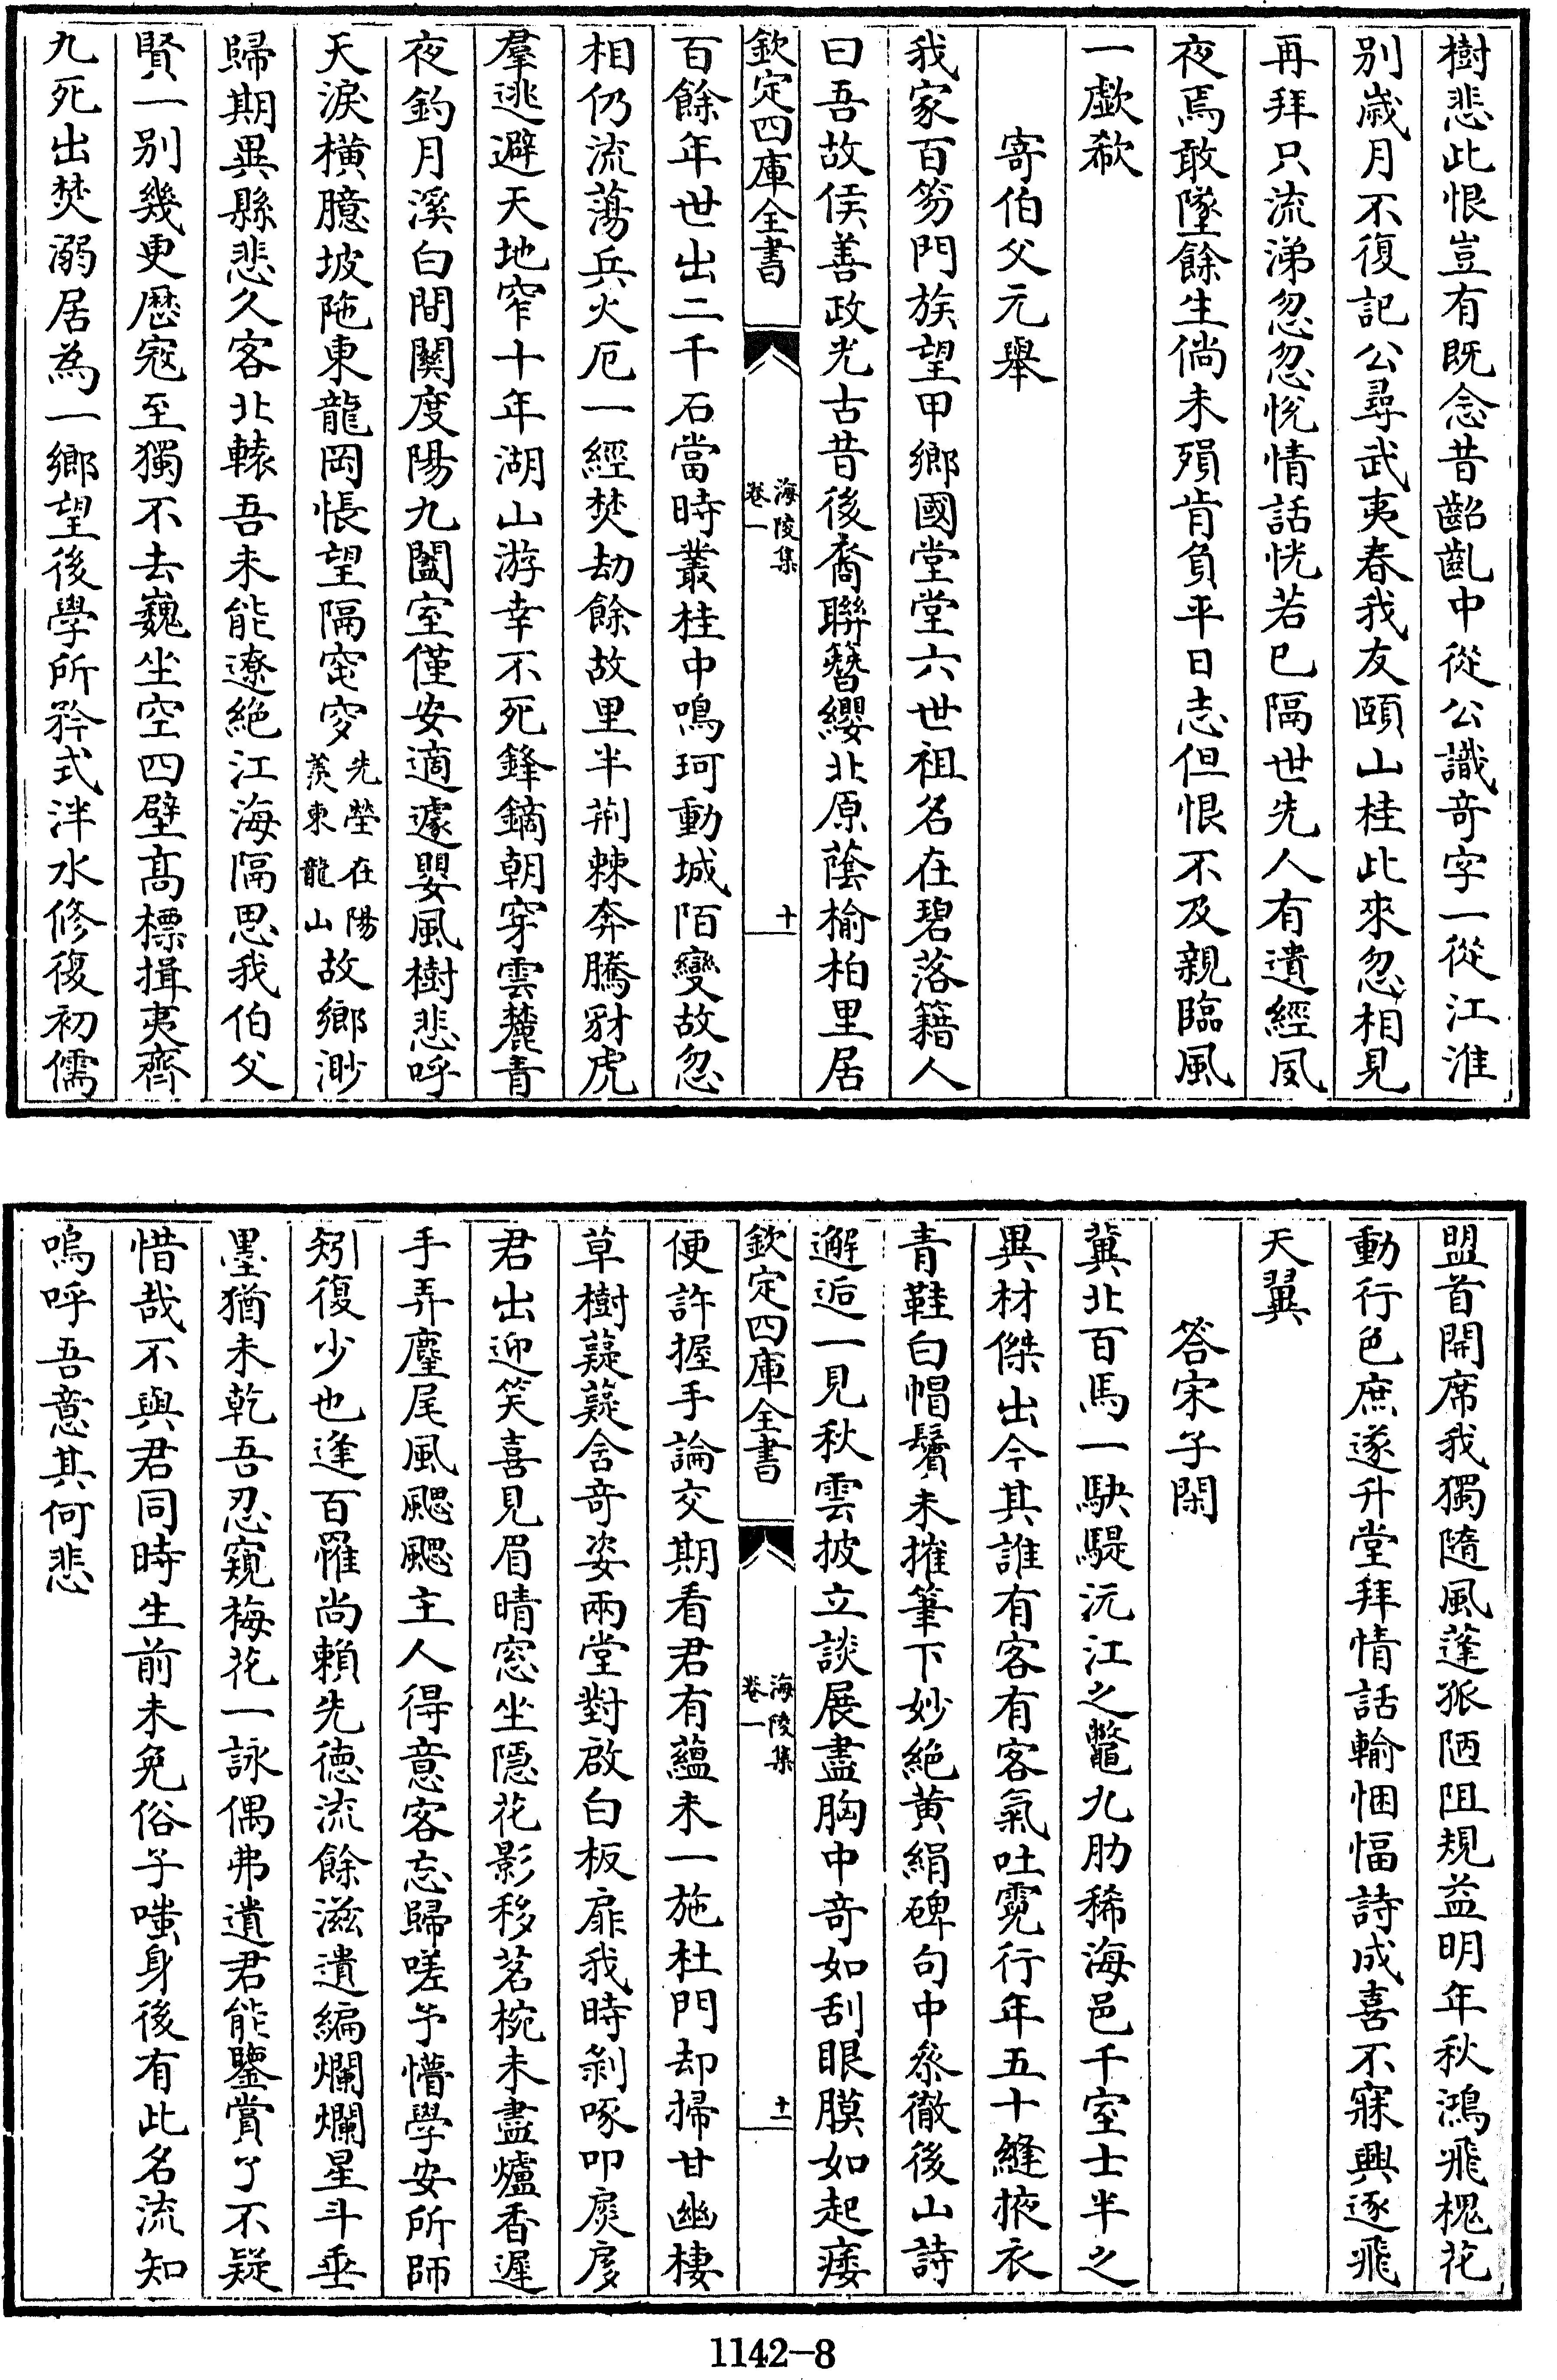 樹悲此恨豈有既念昔齠齓中從公識奇字一從江淮
别嵗月不復記公尋武夷春我友頥山桂此來忽相見
再拜只流涕忽忽恱情話恍若已隔世先人有遺經夙
夜焉敢墜餘生倘未殞肯負平日志但恨不及親臨風
一歔欷
寄伯父元舉
我家百笏門族望甲鄉國堂堂六世祖名在碧落籍人
曰吾故侯善政光古昔後裔聯簪纓北原䕃榆柏里居
欽定四庫全書
海陵集
卷一
十
百餘年世出二千石當時叢桂中鳴珂動城陌變故忽
相仍流蕩兵火厄一經焚劫餘故里半荆棘奔騰豺虎
羣逃避天地窄十年湖山游幸不死鋒鏑朝穿雲麓青
夜釣月溪白間關度陽九闔室僅安適遽嬰風樹悲呼
天淚橫臆坡陁東龍岡悵望隔窀穸先塋在陽羨東龍山故鄉渺
歸期異縣悲久客北轅吾未能遼絶江海隔思我伯父
賢一别幾更厯宼至獨不去巍坐空四壁髙標揖夷齊
九死出焚溺居為一鄉望後學所矜式泮水修復初儒
盟首開席我獨隨風蓬孤陋阻規益明年秋鴻飛槐花
動行色庶遂升堂拜情話輸悃愊詩成喜不寐興逐飛
天翼
答宋子閑
冀北百馬一駃騠沅江之鼈九肋稀海邑千室士半之
異材傑出今其誰有客有客氣吐霓行年五十縫掖衣
青鞋白帽鬢未摧筆下妙絶黄絹碑句中叅徹後山詩
邂逅一見秋雲披立談展盡胸中奇如刮眼膜如起痿
欽定四庫全書
海陵集
卷一
十一
便許握手論交期看君有藴未一施杜門却掃甘幽棲
草樹薿薿含奇姿兩堂對啟白板扉我時剥啄叩扊扅
君出迎笑喜見眉晴窓坐隱花影移茗椀未盡爐香遲
手弄麈尾風颸颸主人得意客忘歸嗟予懵學安所師
矧復少也逢百罹尚賴先徳流餘滋遺編爛爛星斗垂
墨猶未乾吾忍窺梅花一詠偶弗遺君能鑒賞了不疑
惜哉不與君同時生前未免俗子嗤身後有此名流知
嗚呼吾意其何悲
1142-8